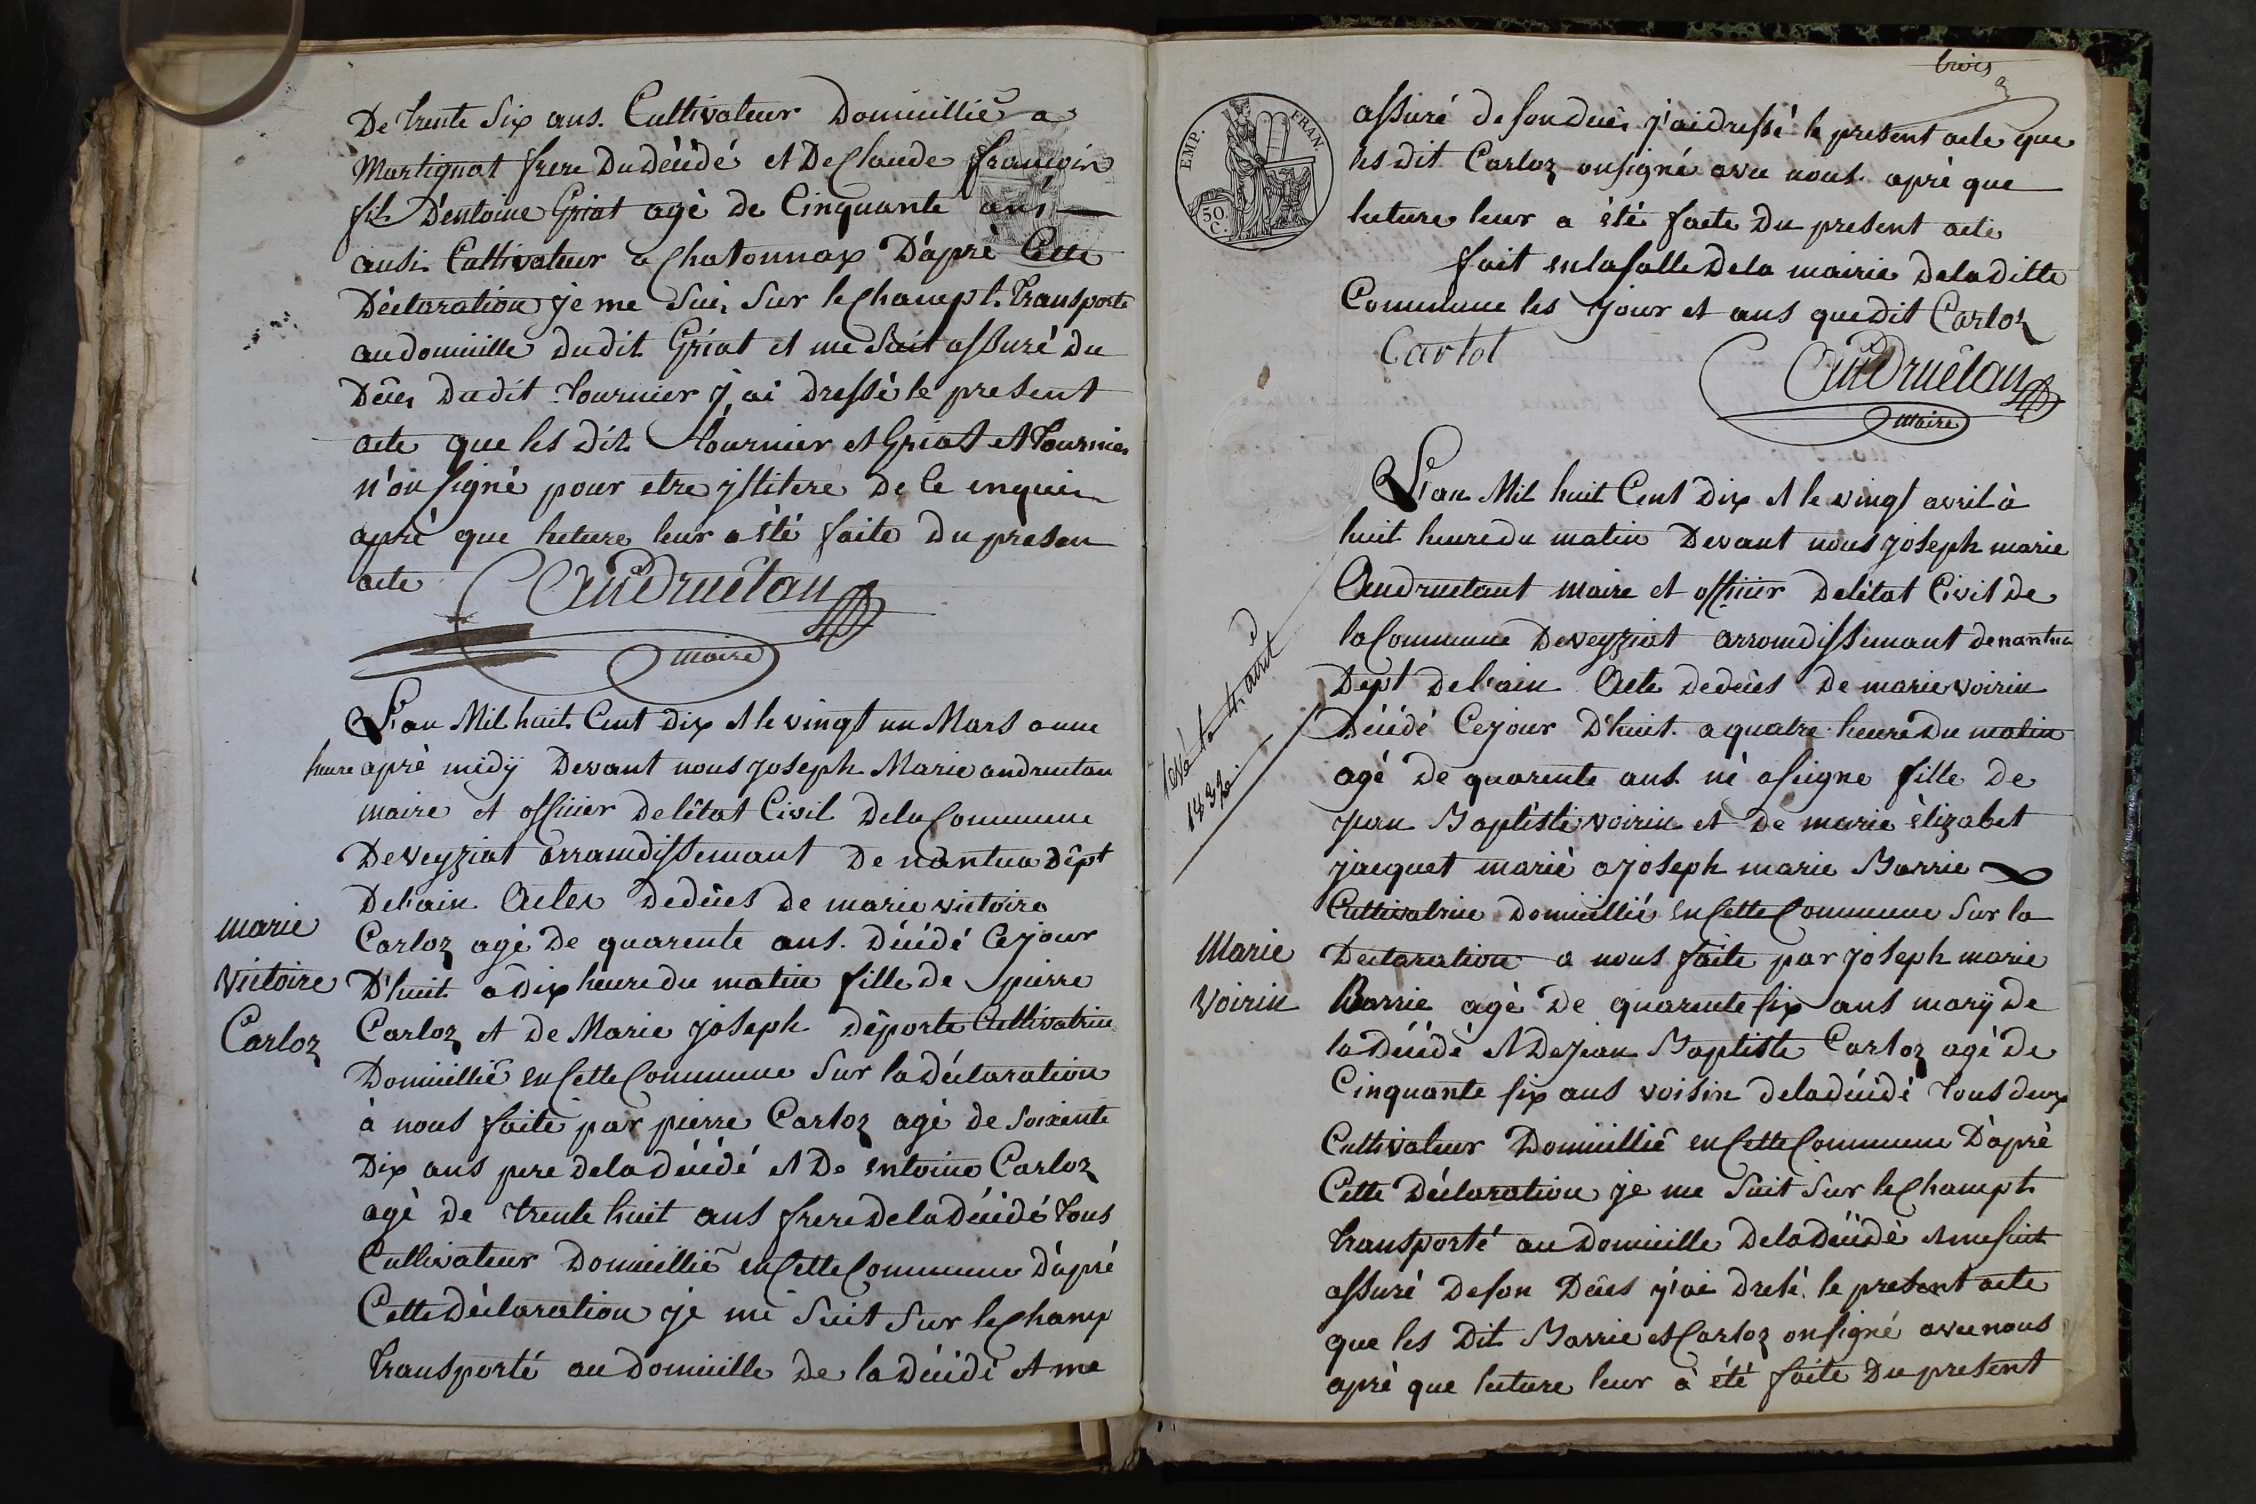 De trente six ans. Cultivateur Domicillié a
Martignat frere Du décédé et De Claude francois
fils D'entoine Griat agé de Cinquante ans
ausi Cultivateur a Chatonnax D'aprè Cette
Déclaration je me Suis Sur le Champt. Transporte
au domicille du dit Griat et me Suit assuré Du
Déces Du dit Tournier j'ai Dressé le present
acte que les Dits Tournier et Griat et Tournier
n'on signé pour etre jlliteré De ce enquis
aprè que lecture leur a été faite Du presen
acte
Andruétan
maire
L'an Mil huit Cent Dix & le vingt un Mars a une
heure aprè medÿ Devant nous joseph Marie andruetan
maire et officier De l'état Civil De la Commune
De veyziat arramdissemant De nantua Dépt
De l'ain Actes De déces De marie victoire
marie
Victoire
Carloz
Carloz agé De quarente ans. Décédé Ce jour
D'huit a Dix heure du matin fille De pierre
Carloz et de Marie joseph déporte Cultivatrice
Domicillié en Cette Commune Sur la Déclaration
à nous faite par pierre Carloz agé de Soixente
Dix ans pere De la Décédé et De entoine Carloz
agé de trente huit ans frere De la Décédé tous
Cultivateur Domicillié en Cette Commune D'aprè
Cette Déclaration je me Suit Sur le Champ
Transporté au domicille De la Décédé et me
trois
3
EMP. FRAN.
50. C.
assuré De son déces j'ai dressé le present acte que
les dit Carloz on signé avec nous aprè que
lecture leur a été faete Du present acte
fait en la salle De la mairie De la ditte
Commune les jour et ans que dit Carloz
Cartot
Andruétan
maire
L'an Mil huit Cent Dix & le vingt avril à
huit heure du matin Devant nous joseph marie
Andruetant maire et officier De l'état Civil De
la Commune De veyziat arromdissemant de nantua
Dept De l'ain Acte De déces De marie voirin
Décédé Ce jour D'huit a quatre heure Du matin
agé De quarente ans né a signe fille De
jean Baptiste voirin et De marie élizabet
jacquet marié a joseph marie Barrie
Cultivatrice Domicillié en Cette Commune Sur la
avril
1832
Marie
Voirin
Déclaration a nous faite par joseph marie
Barrie agé De quarente six ans marÿ De
la Décédé & De jean Baptiste Carloz agé De
Cinquante six ans voisin De la décédé tous deux
Cultivateur Domicillié en Cette Commune D'aprè
Cette Déclaration je me Suit Sur le Champt.
Transporté au Domicille De la Décédé & me suit
assuré De son Déces j'ai dresé le present acte
que les Dit Barrie et Carloz on signé avec nous
aprè que lecture leur a été faite Du present